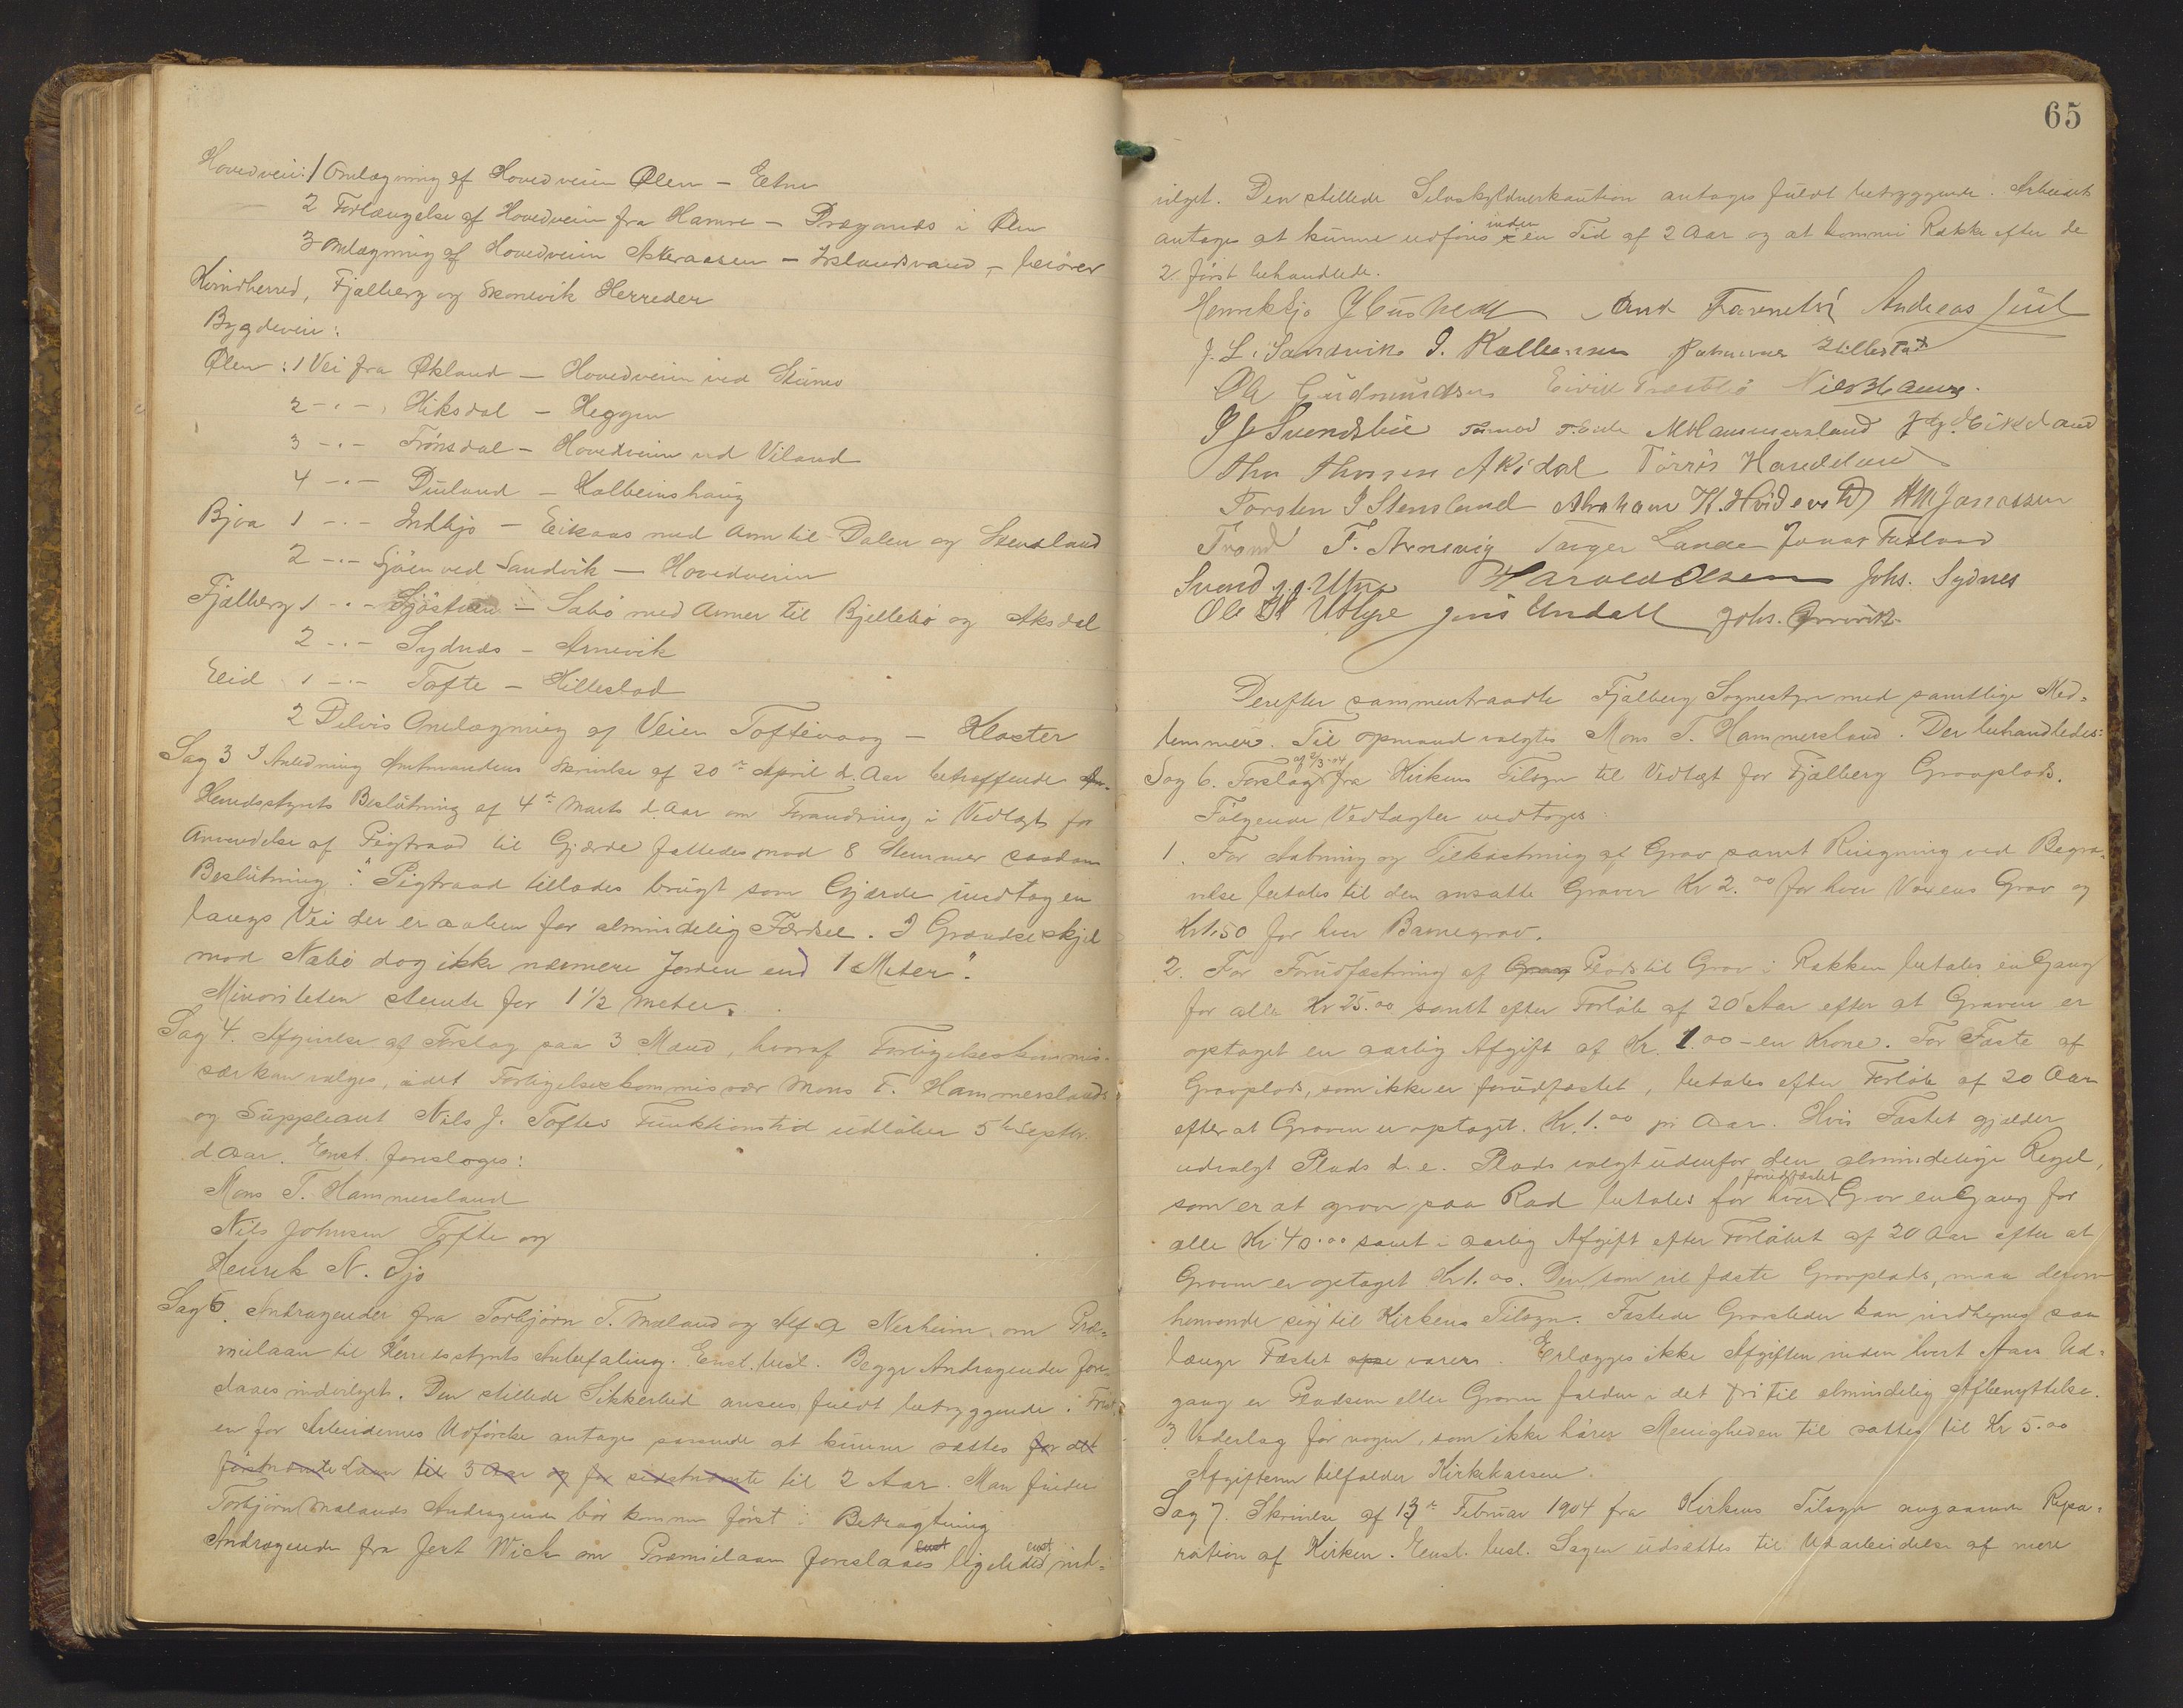 Hovedveie: 1 Omlægning af Hovedveien Ølen - Etne
2 Forlængelse af Hovedveien fra Hamre - Dragenæs i Ølen
3 Omlægning af Hovedveien Akeraasen - Islandsvand - berører
Kvindherred, Fjælberg og Skonevik Herreder
Bygdeveie:
Ølen: 1 Vei fra Økland - Hovedveien ved Stumo
2 -"- Hiksdal - Heggen
3 -"- Trönsdal - Hovedveien ved Viland
4 -"- Duland - Kalbeinshaug
Bjoa 1 -"- Indbjo - Eikaas med Arm til Dalen og Stensland
2 -"- Sjøen ved Sandvik - Hovedveien
Fjælberg 1 -"- Sjöstuen - Sæbö med Armer til Bjellebö og Aksdal
2 -"- Sydnæs - Arnevik
Eid 1 -"- Tofte - Hillestad
2 Delvis Omlægning af Veien Toftevaag - Kloster
Sag 3 I Anledning Amtmandens Skrivelse af 20de April d. Aar betreffende
Herredsstyrets Beslutning af 4de Marts d. Aar om Forandring i Vedtægt for
Anvendelse af Pigtraad til Gjærde fattedes mod 8 Stemmer saadan
Beslutning: "Pigtraad tillades brugt som Gjærde undtagen
langs Vei der er aaben for almindelig Færdsel. I Grændseskjel
mod Nabo dog ikke nærmere Jorden end 1 Meter".
Minoriteten stemte for 1 1/2 meter.
Sag 4. Afgivelse af Forslag paa 3 Mænd, hvoraf Forligelseskommis-
sær kan vælges, idet Forligelseskommissær Mons T. Hammerslands
og Suppleant Nils J. Toftes Funktionstid udløber 5te Septbr.
d. Aar. Enst. foresloges:
Mons T. Hammersland
Nils Johnsen Tofte og
Henrik N. Sjo
Sag 5. Andragender fra Torbjörn T. Mæland og Alf A Nerheim om Præ-
mielaan til Herredsstyrets Anbefaling. Enst. besl. Begge Andragender fore-
slaaes indvilget. Den stillede Sikkerhed ansees fuldt betryggende. Frist-
en for Arbeidernes Udførelse antages passende at kunne sættes for det
førstnævnte Laan til 3 Aar og for sidstnævnte til 2 Aar. Man finder
Torbjörn Mælands Andragende bör komme först i Betragtning
Andragende fra Jert Wick om Præmielaan foreslaaes enst ligeledes enst ind-
65
vilget. Den stillede Selvskyldnerkaution antages fuldt betryggende. Arbeidet
antages at kunne udføres inden en Tid af 2 Aar og at komme i Række efter de
2 först behandlede.
Henrik Sjo And Andreas Juel
J. L. Sandvik I. Kalleinsen Hillestad
Ole Gudmundsen Eivik Nils Hamre
I J Svendsbøe M Hammersland Eikeland
Thorsen Akidal Törris Handeland
Torsten J Stensland Abraham K. Hvidevold Jonassen
Trond T. Arnevig Torger Lande Jonas
Svend J. J. Utne Harald Olsen Johs. Sydnes
Ole Utbyre Jens Undall Johs.
Derefter sammentraadte Fjælberg Sognestyre med samtlige Med-
lemmer. Til opmand valgtes Mons T. Hammersland. Der behandledes:
Sag 6. Forslag af 2/3-04 fra Kirkens Tilsyn til Vedtægt for Fjælberg Gravplads.
Fölgende Vedtægter vedtoges:
1. For Aabning og Tilkastning af Grav samt Ringning ved Begra-
velse betales til den ansatte Graver Kr 2.00 for hver Voxens Grav og
Kr 1.50 for hver Barnegrav.
2. For Forudfæstning af Grav Plads til Grav i Rækken betales en Gang
for alle Kr 25.00 samt efter Forløb af 20 Aar efter at Graven er
optaget en aarlig Afgift af Kr. 1.00 - en Krone. For Fæste af
Gravplads, som ikke er forudfæstet, betales efter Forløb af 20 Aar
efter at Graven er optaget. Kr. 1.00 pr Aar. Hvis Fæstet gjælder
udvalgt Plads d.e. Plads valgt udenfor den almindelige Regel,
som er at grave paa Rad betales for hver forudfæstet Grav en Gang for
alle Kr. 40.00 samt i aarlig Afgift efter Forløbet af 20 Aar efter at
Graven er optaget Kr 1.00. Den som vil fæste Gravplads, maa derom
henvende sig til Kirkens Tilsyn. Fæstede Gravsteder kan indhegnes saa
længe Fæstet varer. Erlægges ikke Afgiften inden hvert Aars Ud-
gang er Pladsen eller Graven falden i det fri til almindelig Afbenyttelse.
3 Vederlag for nogen, som ikke hörer Menigheden til sættes til Kr 5.00
Afgifterne tilfalder Kirkekassen.
Sag 7. Skrivelse af 13de Februar 1904 fra Kirkens Tilsyn angaaende Repa-
ration af Kirken. Eenst. besl. Sagen udsættes til Udarbeidelse af mere